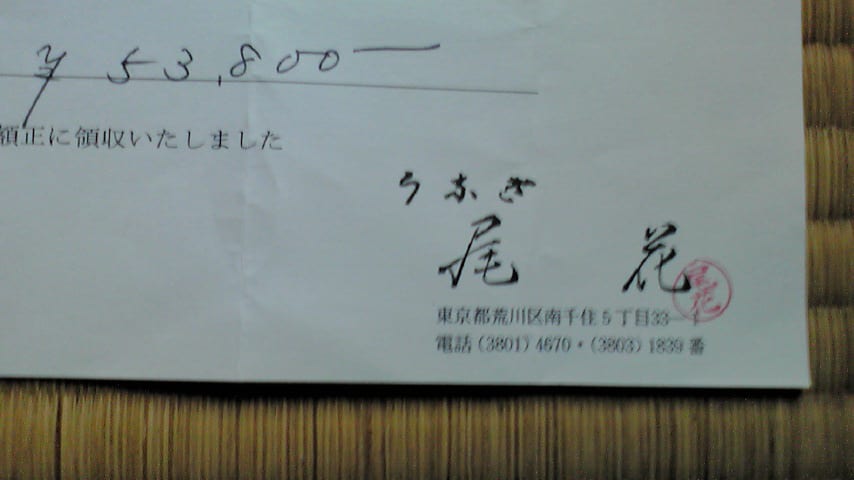 ¥53,800-
領正に領収いたしました
うなぎ
尾花
東京都荒川区南千住5丁目33-1
電話(3801)4670・(3803)1839番